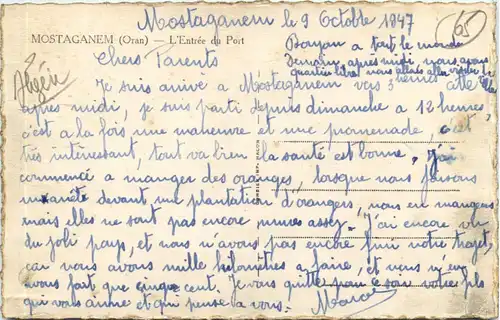 Mostaganem le 9 Octobre 1947
65
MOSTAGANEM (Oran) — L'Entrée du Port
Bonjour a tout le monde
Demain après midi, nous avons
quartier libre nous allons aller visiter la
ville
Chers Parents
Algérie
Je suis arrivé a Mostaganem vers 3 heures cette
après midi, je suis parti depuis dimanche a 12 heures,
c'est a la fois, une maneuvre et une promenade, c'est
très intéressant, tout va bien la santé est bonne, j'ai
commencé a manger des oranges, lorsque nous faisons
un arrête devant une plantation d'orangers, nous en mangeons
mais elles ne sont pas encore mures assez. J'ai encore vu
du joli pays, et nous n'avons pas encore fini notre trajet,
car nous avons mille kilomètres a faire, et nous n'en
avons fait que cinque cent. Je vous quitte pour ce soir votre fils
qui vous aime et qui pense a vous. Marcel